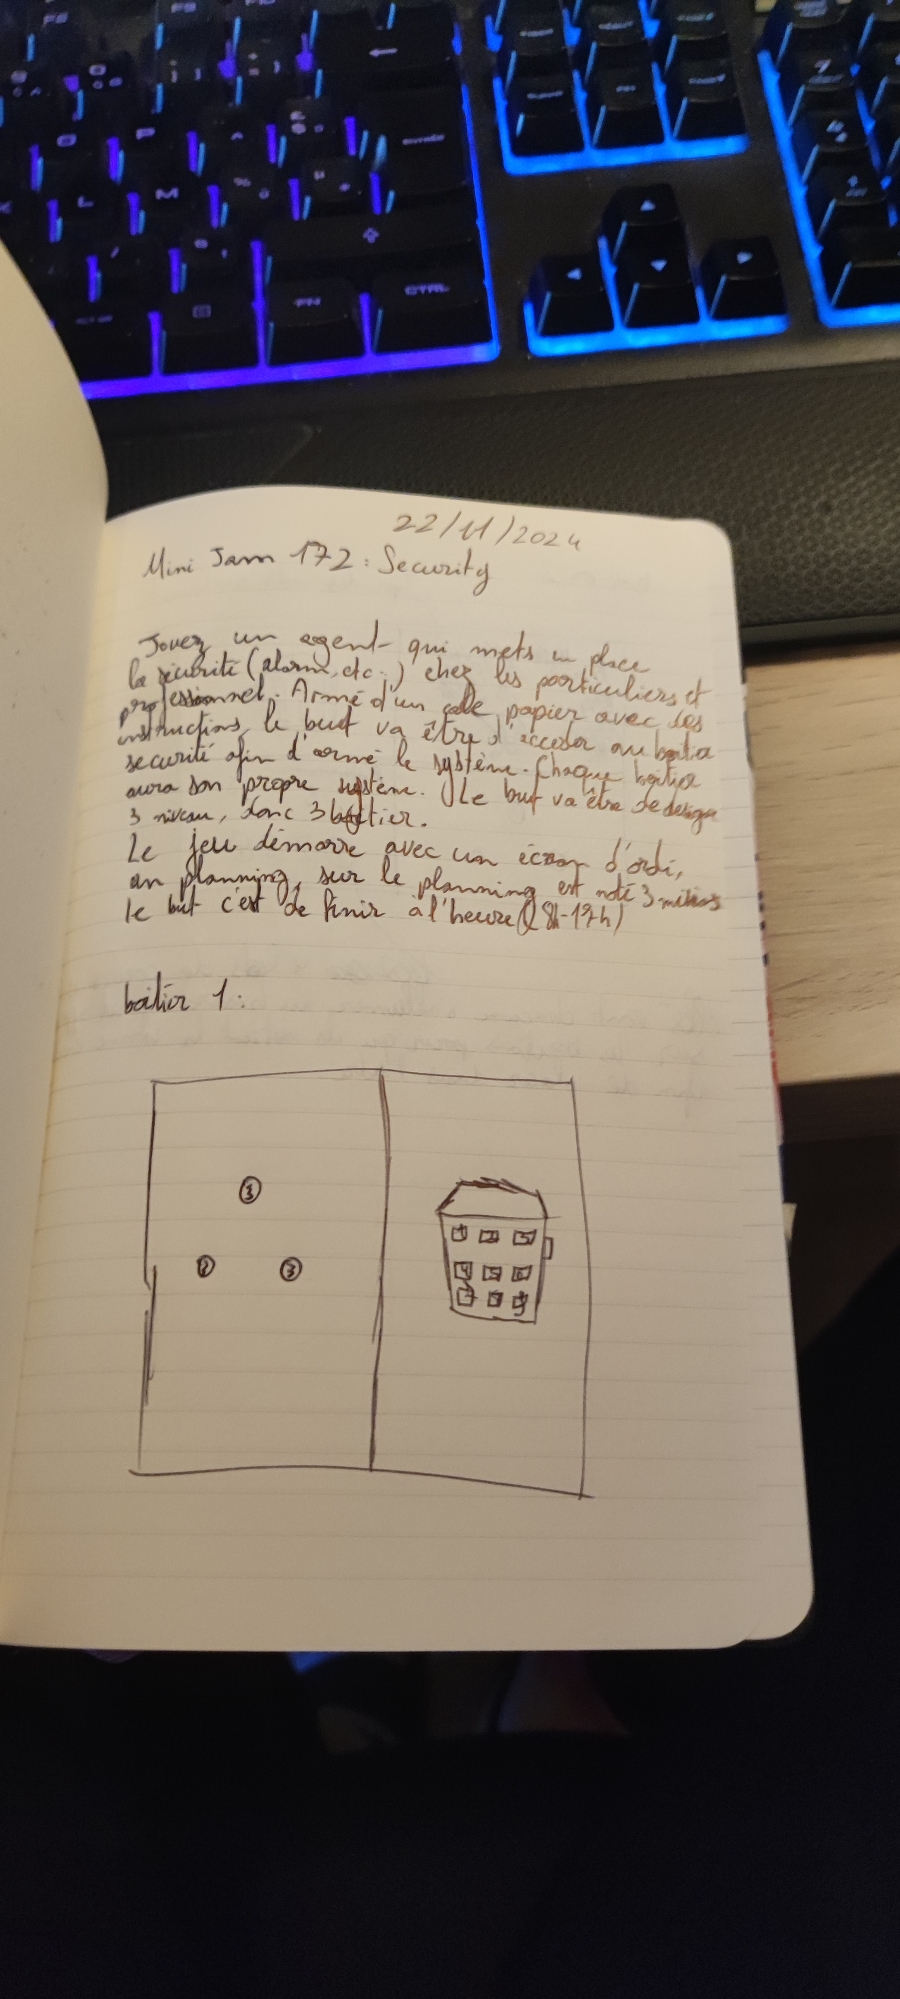 22/11/2024
Mini Jam 172 : Security
Jouez un agent qui mets en place
la sécurité (alarm, etc..) chez les particuliers et
professionnel. Armé d'un papier avec des
instructions, le but va être d'acceder au boitier
securité afin d'armé le système. Chaque boitier
aura son propre système. Le but va être de design
3 niveau, donc 3 boitier.
Le jeu démarre avec un écran d'ordi,
un planning, sur le planning est noté 3
le but c'est de finir à l'heure (8h-17h)
boitier 1 :
1 2 3
4 5 6
7
ENTRÉE
P
L
M
FN
CTRL